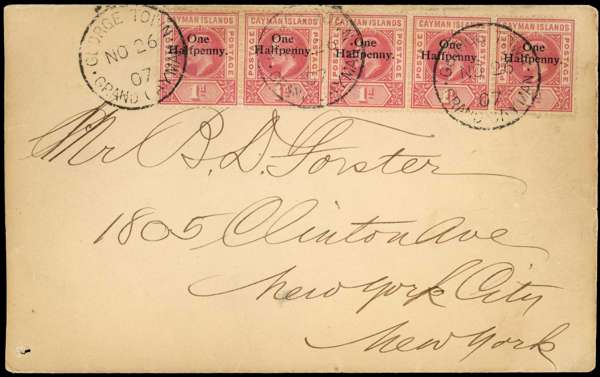 CAYMAN ISLANDS CAYMAN ISLANDS CAYMAN ISLANDS CAYMAN ISLANDS CAYMAN ISLANDS
POSTAGE POSTAGE POSTAGE POSTAGE POSTAGE
One One One One One
Halfpenny. Halfpenny. Halfpenny. Halfpenny. Halfpenny.
1d 1d
GEORGE TOWN
NO 26
07
GRAND CAYMAN
NO 26
07
GRAND CAYMAN
Mr B. D. Forster
1805 Clinton Ave
New York City
New York